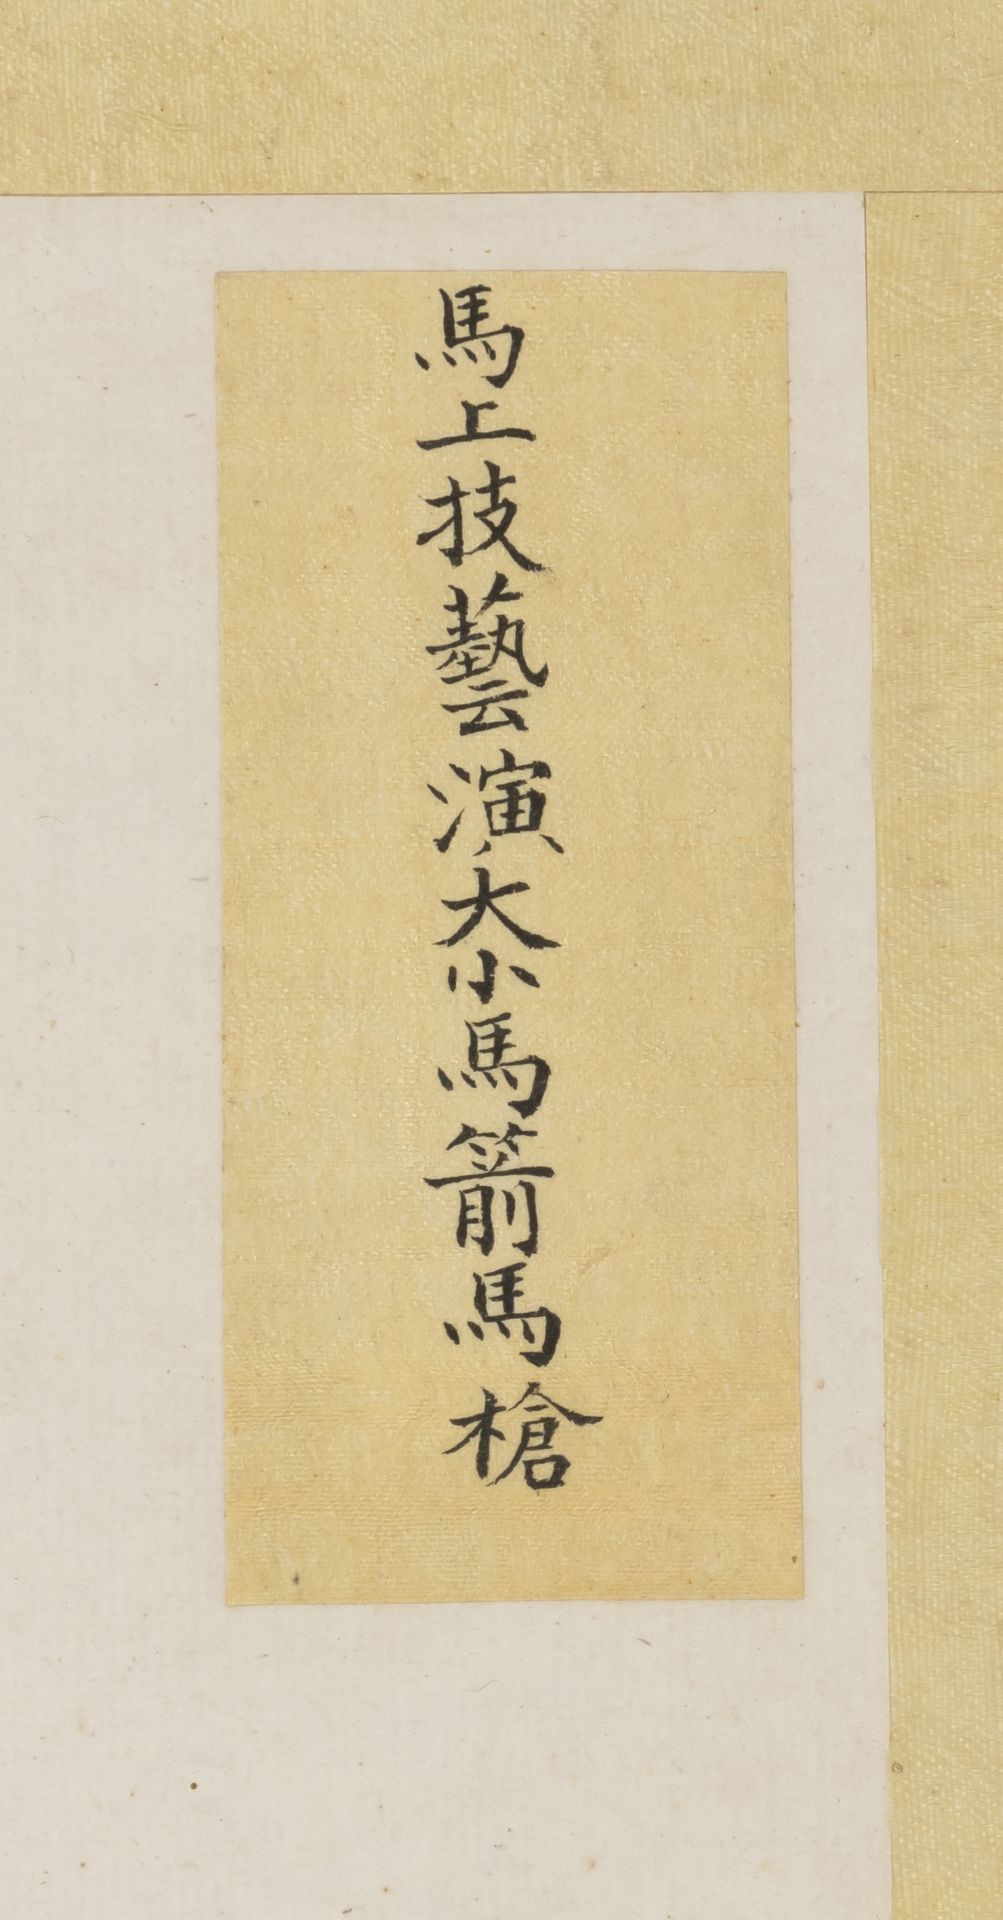 馬上技藝演大小馬箭馬槍